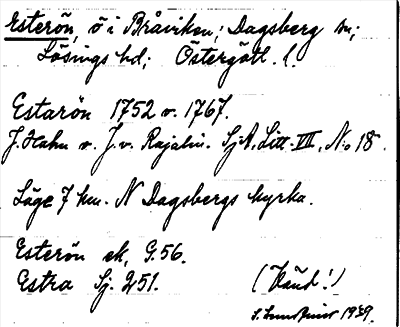 Esterön, ö i Bråviken; Dagsberg sn;
Lösings hd; Östergötl. l.
Estarön 1752 o. 1767.
J. Hahn o. J. v. Rajalin. SjA. Litt. VIII, No 18.
Läge 7 km. N Dagsbergs kyrka.
Esterön ek, G.56.
Estra Sj. 251. (Känd!)
1939.